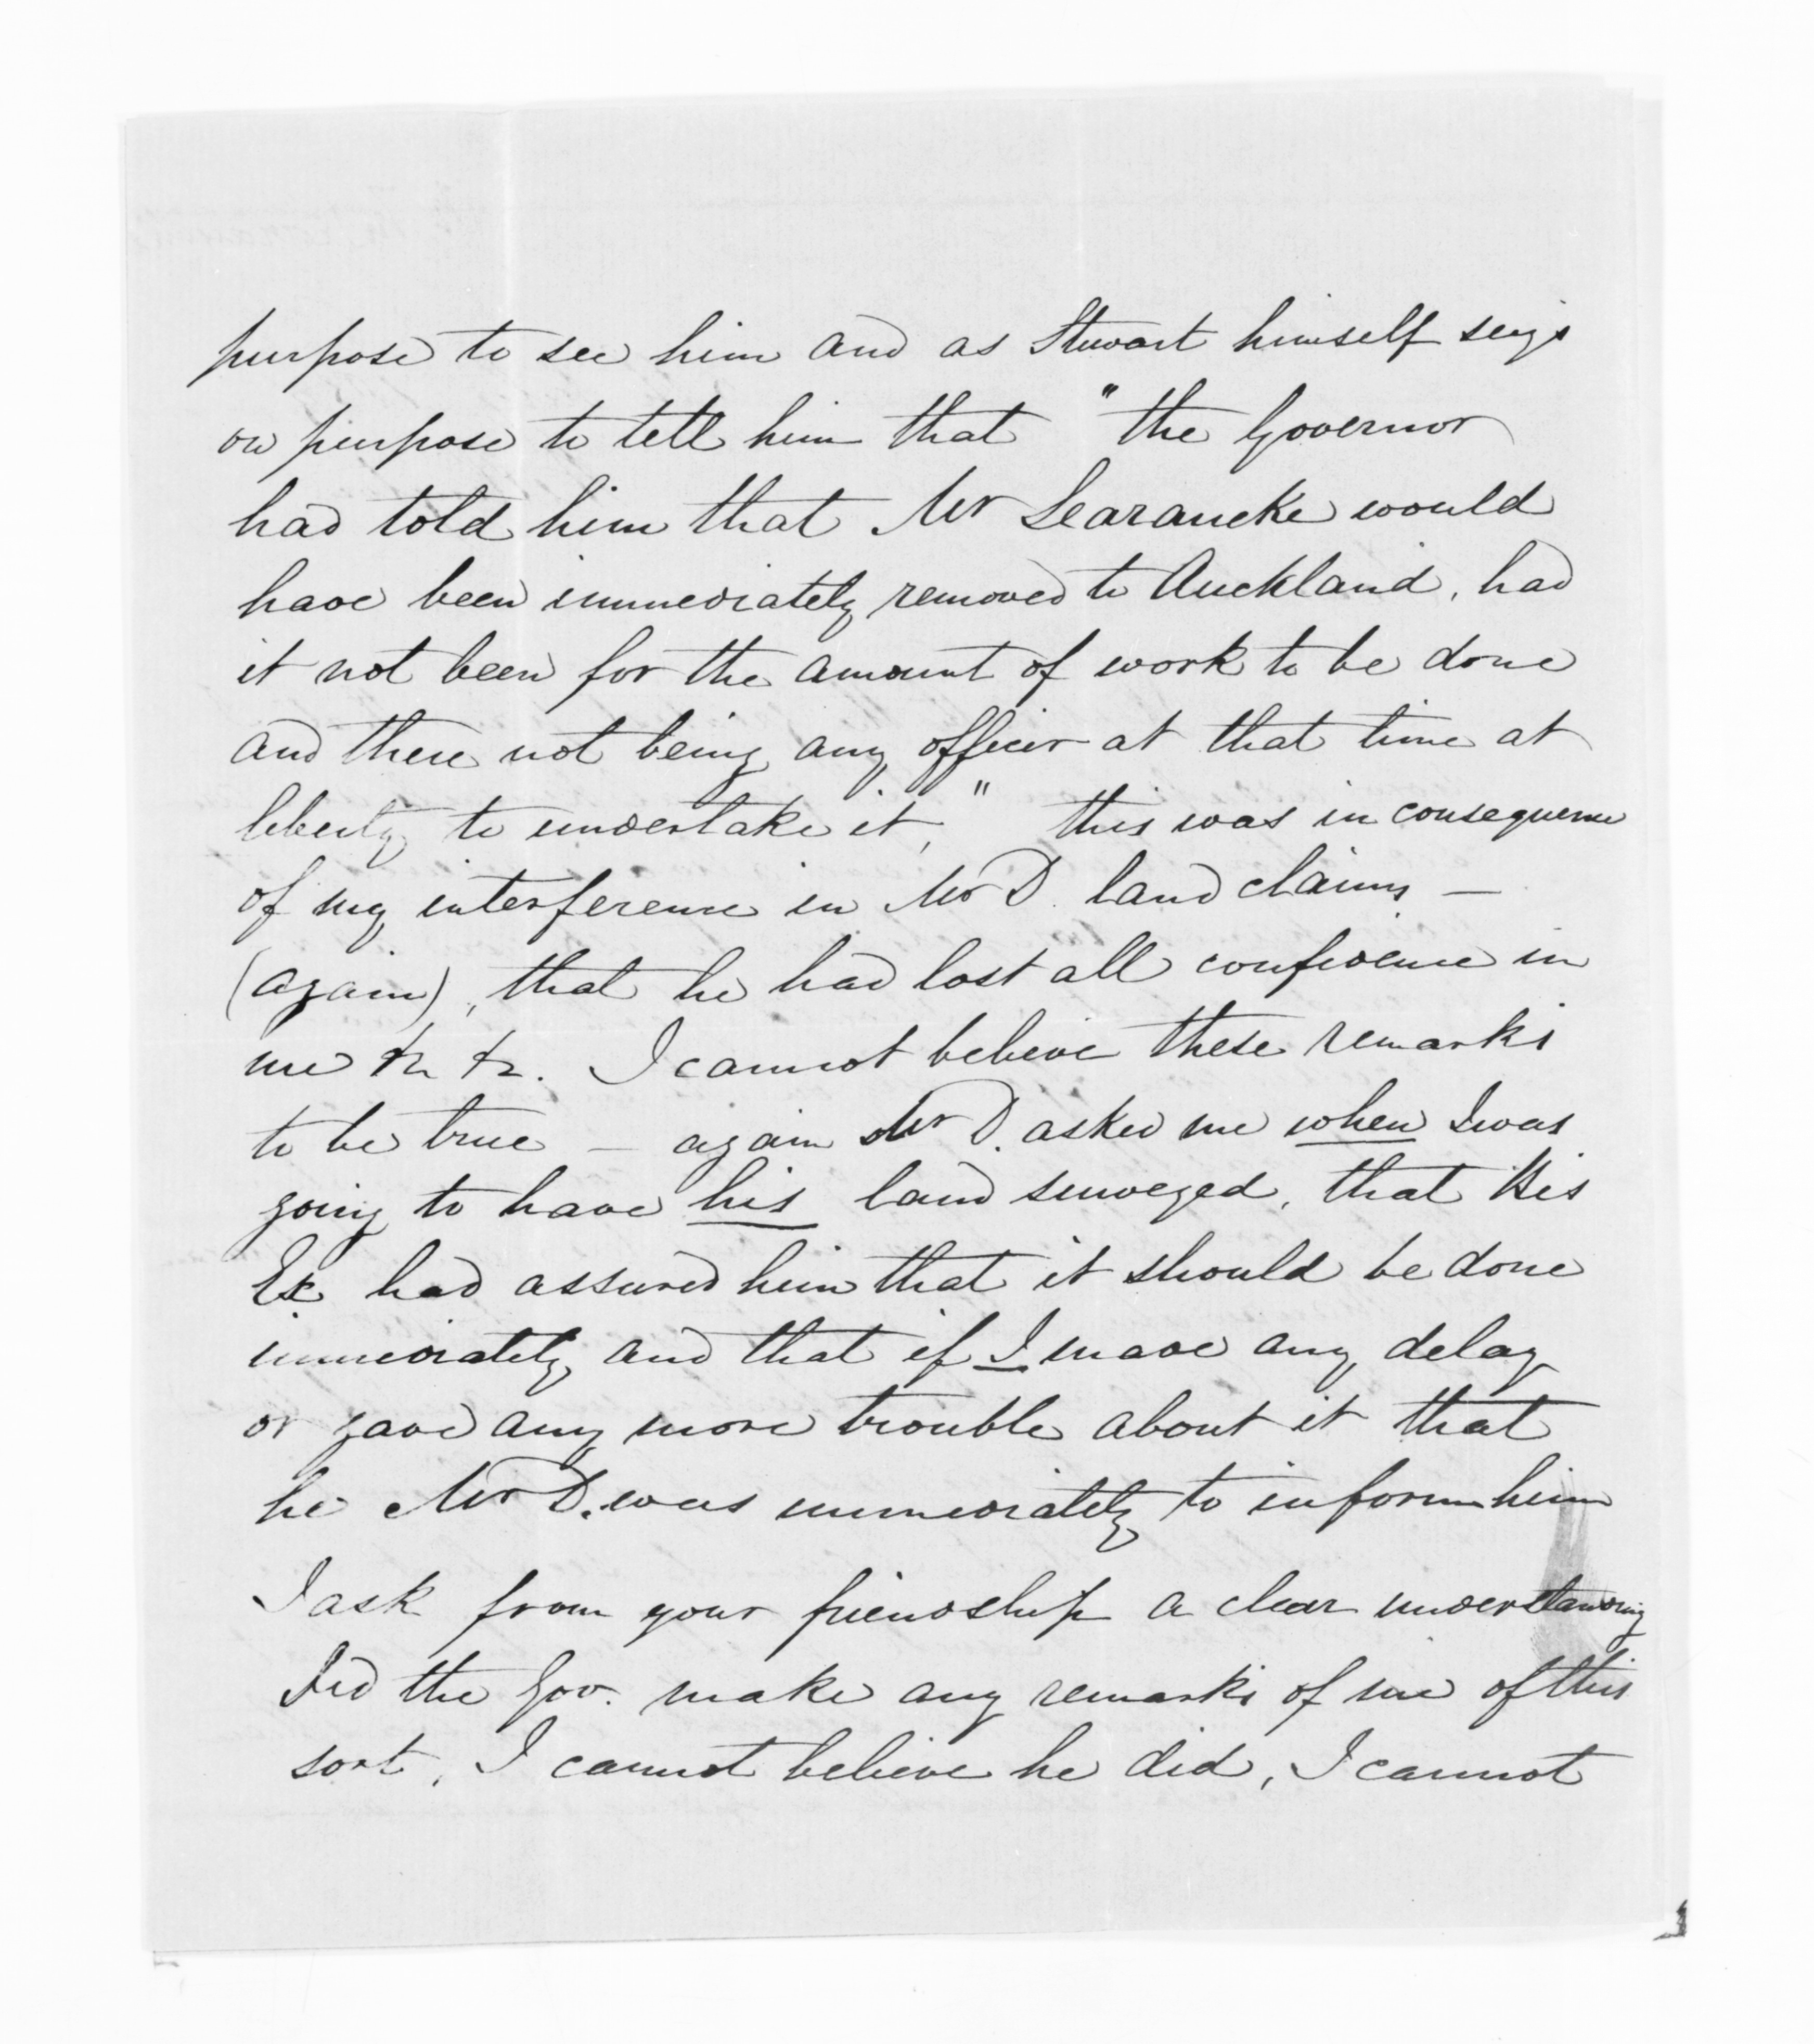 purpose to see him and as Stewart himself says
on purpose to tell him that "the Governor
had told him that Mr Searancke would
have been immediately removed to Auckland, had
it not been for the amount of work to be done
and there not being any officer at that time at
liberty to undertake it," this was in consequence
of my interference in Mr D. land claims —
(again), that he had lost all confidence in
me &c &c. I cannot believe these remarks
to be true — again Mr D. asked me when I was
going to have his land surveyed, that His
Ex had assured him that it should be done
immediately and that if I made any delay
or gave any more trouble about it that
he Mr D. was immediately to inform him
I ask from your friendship a clear understanding
Did the Gov. make any remarks of me of this
sort, I cannot believe he did, I cannot